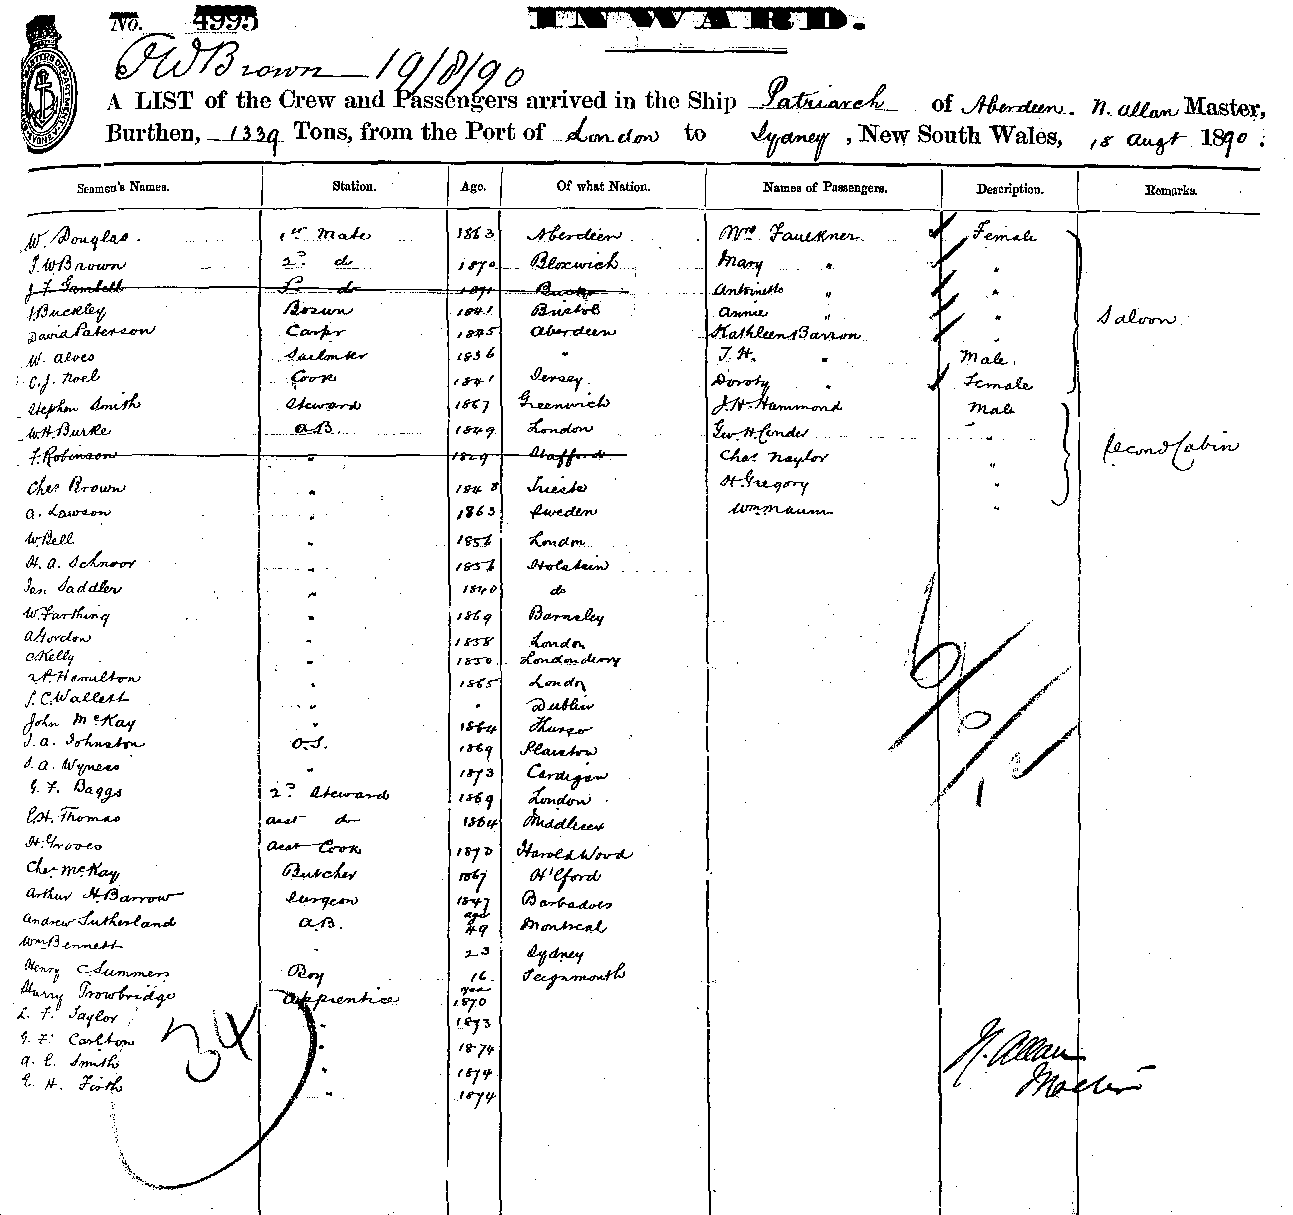 No. 4995 INWARD.
F W Brown 19/8/90
A LIST of the Crew and Passengers arrived in the Ship Patriarch of Aberdeen. N. Allan Master,
Burthen, 1339 Tons, from the Port of London to Sydney, New South Wales, 18 Augt 1890.
Seamen's Names. Station. Age. Of what Nation. Names of Passengers. Description. Remarks.
W. Douglas. 1st Mate 1863 Aberdeen Mrs Faulkner Female
J W Brown 2nd do 1870 Bloxwich Mary " "
J. F. Gambell do 1871 Antoinette " "
Buckley Bosun 1841 Bristol Annie " " Saloon
David Paterson Carpr 1845 Aberdeen Kathleen Barron "
W. Alves Sailmker 1836 " J. H. " Male.
C. J. Noel Cook 1841 Jersey. Doroty " Female
Stephen Smith Steward 1867 Greenwich J. H. Hammond Male
W. H. Burke A.B. 1849 London Geo H. Cender "
F. Robinson " 1829 Stafford Chas Naylor " Second Cabin
Chas Brown " 1848 Trieste H Gregory "
A. Lawson " 1863 Sweden Wm Maum "
W. Bell " 1856 London
H. A. Schnoor " 1856 Holstein
Jas. Saddler " 1840 do
W. Farthing " 1869 Barnsley
A Gordon " 1858 London
C Kelly " 1850 Londonderry
A. Hamilton " 1865 London
S. C. Wallett " " Dublin
John McKay " 1864 Thurso
J. A. Johnston O.S. 1869 Plaistow
J. A. Wyness " 1873 Cardigan
G. F. Baggs 2nd Steward 1869 London
C. H. Thomas asst do 1864 Middlesex
H. Groves asst Cook 1870 Harold Wood
Chas McKay Butcher 1867 H'lford
Arthur H. Barrow Surgeon 1847 Barbadoes
Andrew Sutherland A.B. age 49 Montreal
Wm Bennett " 23 Sydney
Henry C. Summers Boy 16 Teignmouth
Harry Trowbridge Apprentice year 1870
L. F. Taylor " 1873
G. F. Carlton " 1874
A. C. Smith " 1874
E. H. Firth " 1874
34
N. Allan
Master